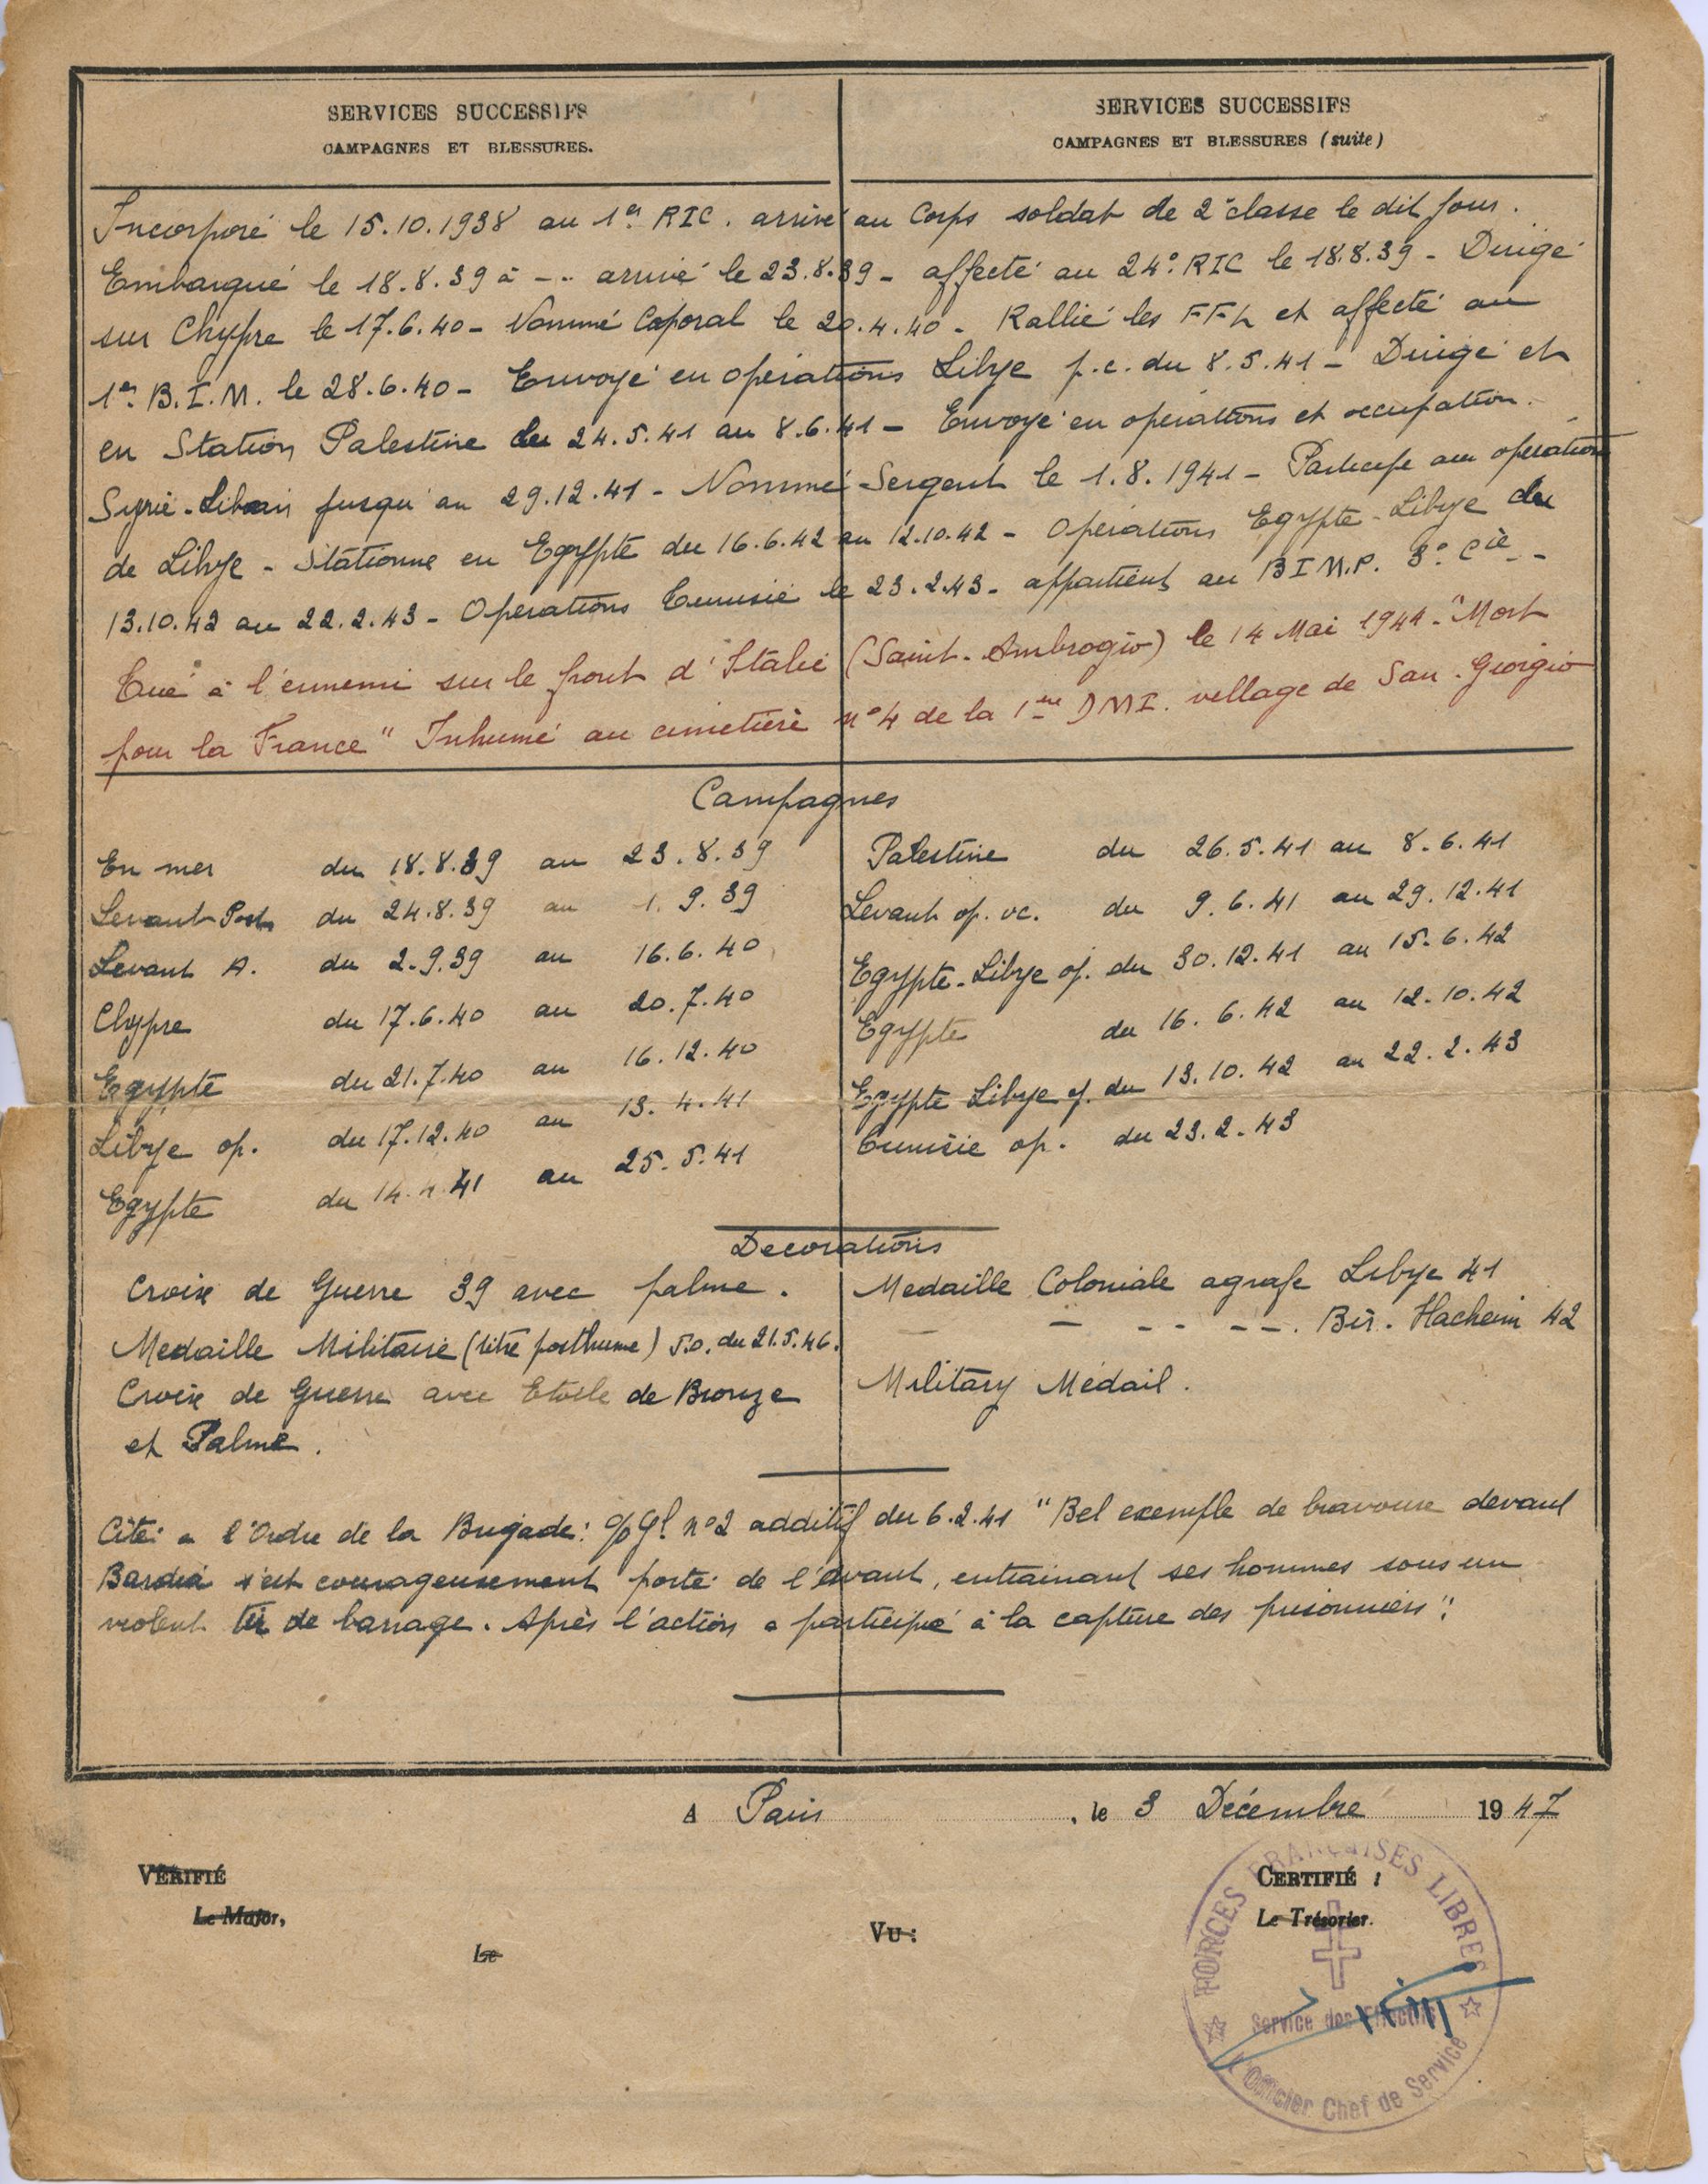 SERVICES SUCCESSIFS
CAMPAGNES ET BLESSURES.
SERVICES SUCCESSIFS
CAMPAGNES ET BLESSURES (suite)
Incorporé le 15.10.1938 au 1er RIC. arrivé au Corps soldat de 2e classe le dit jour.
Embarqué le 18.8.39 à --. arrivé le 23.8.39 - affecté au 24e RIC le 18.8.39 - Dirigé
sur Chypre le 17.6.40 - Nommé Caporal le 20.4.40 - Rallié les FFL et affecté au
1er B.I.M. le 28.6.40 - Envoyé en opérations Libye p.c. du 8.5.41 - Dirigé et
en Station Palestine du 24.5.41 au 8.6.41 - Envoyé en opérations et occupation.
Syrie-Liban jusqu'au 29.12.41 - Nommé Sergent le 1.8.1941 - Participe aux opérations
de Libye - Stationne en Egypte du 16.6.42 au 12.10.42 - Opérations Egypte-Libye du
13.10.42 au 22.2.43 - Opérations Tunisie le 23.2.43 - appartient au BIMP. 3e Cie -
Tué à l'ennemi sur le front d'Italie (Saint-Ambrogio) le 14 Mai 1944 - "Mort
pour la France" Inhumé au cimetière n°4 de la 1ère DMI. village de San-Giorgio
Campagnes
En mer du 18.8.39 au 23.8.39
Levant Port du 24.8.39 au 1.9.39
Levant A. du 2.9.39 au 16.6.40
Chypre du 17.6.40 au 20.7.40
Egypte du 21.7.40 au 16.12.40
Libye op. du 17.12.40 au 13.4.41
Egypte du 14.4.41 au 25.5.41
Palestine du 26.5.41 au 8.6.41
Levant op. oc. du 9.6.41 au 29.12.41
Egypte-Libye op. du 30.12.41 au 15.6.42
Egypte du 16.6.42 au 12.10.42
Egypte Libye op. du 13.10.42 au 22.2.43
Tunisie op. du 23.2.43
Decorations
Croix de Guerre 39 avec palme.
Medaille Militaire (titre posthume) J.O. du 21.5.46.
Croix de Guerre avec Etoile de Bronze
et Palme.
Medaille Coloniale agrafe Libye 41
— — - - - -. Bir-Hacheim 42
Military Médail.
Cité a l'Ordre de la Brigade: O/Gl n°2 additif du 6.2.41 "Bel exemple de bravoure devant
Bardia s'est courageusement porté de l'avant, entrainant ses hommes sous un
violent tir de barrage. Après l'action a participé à la capture des prisonniers".
A Paris, le 3 Décembre 1947
VÉRIFIÉ
Le Major,
Le
VU:
CERTIFIÉ :
Le Trésorier.
FORCES FRANÇAISES LIBRES
Service des Effectifs
L'Officier Chef de Service